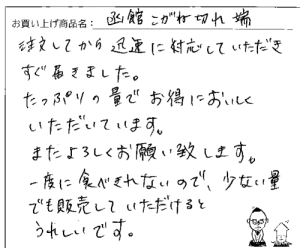 お買い上げ商品名: 函館こがね切れ端
注文してから迅速に対応していただき
すぐ届きました。
たっぷりの量でお得においしく
いただいています。
またよろしくお願い致します。
一度に食べきれないので、少ない量
でも販売していただけると
うれしいです。